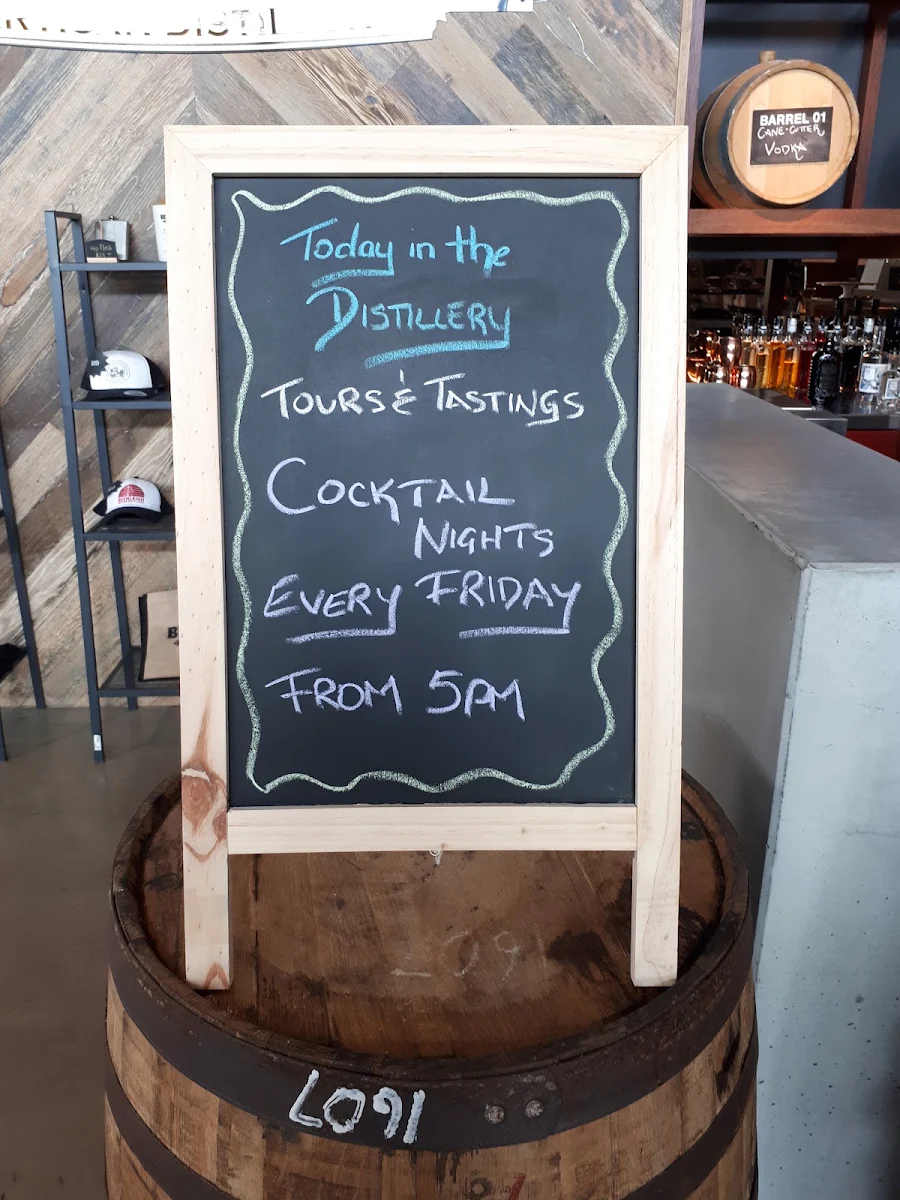 BARREL 01
CANE-CUTTER
VODKA
Today in the
DISTILLERY
TOURS & TASTINGS
COCKTAIL
NIGHTS
EVERY FRIDAY
FROM 5PM